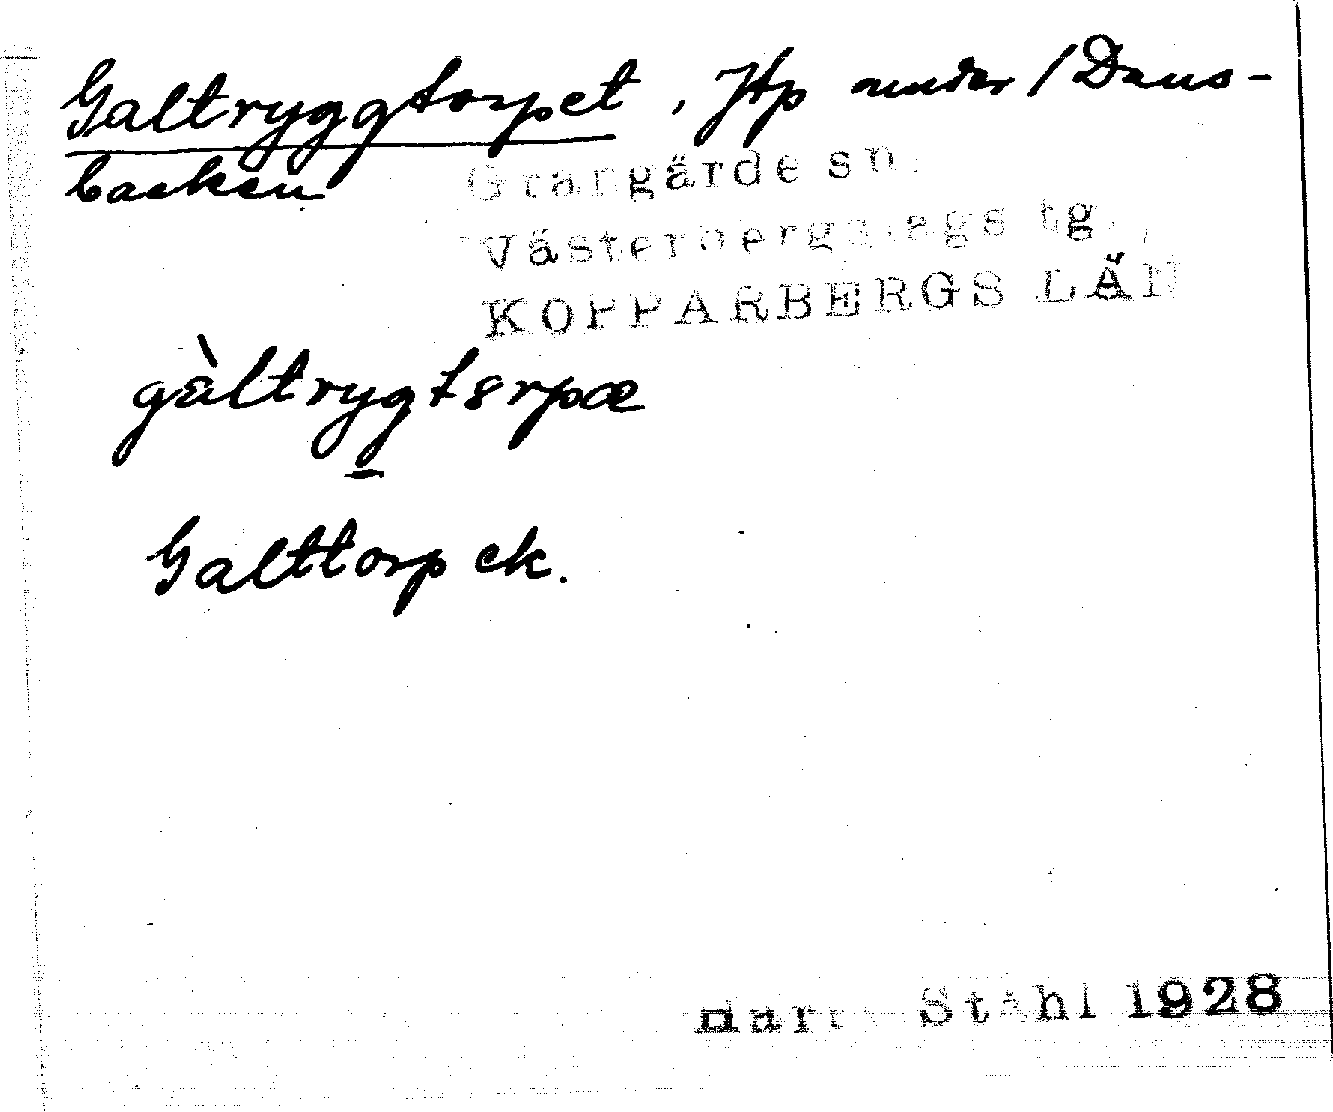 Galtryggtorpet, Htp under / Dans-
backen
Grangärde sn.
Västerbergslags tg.,
KOPPARBERGS LÄN
gàltrygtsrpæ
Galttorp ek.
Harry Ståhl 1928